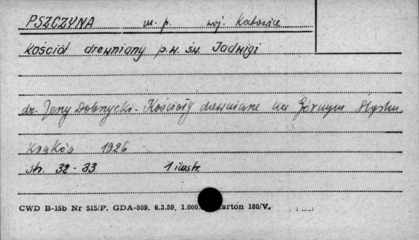 PSZCZYNA m. p. woj. Katowice
Kościół drewniany p.w. św. Jadwigi
dr. Jerzy Dobrzycki - Kościoły drewniane na Górnym Śląsku
Kraków 1926
str. 32-33 1 ilustr.
CWD B-15b Nr 515/P. GDA-809. 6.3.59, 1.000. Karton 180/V.